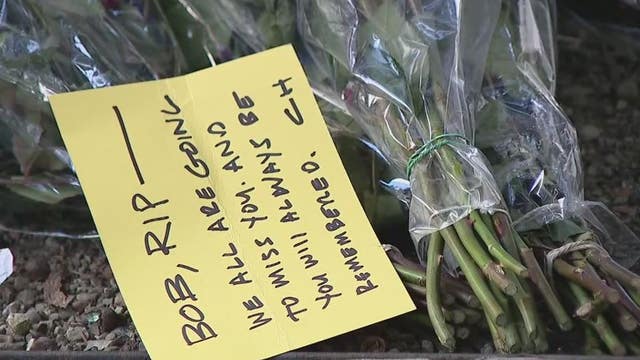 BOB, RIP —
WE ALL ARE GOING
TO MISS YOU, AND
YOU WILL ALWAYS BE
REMEMBERED. CH